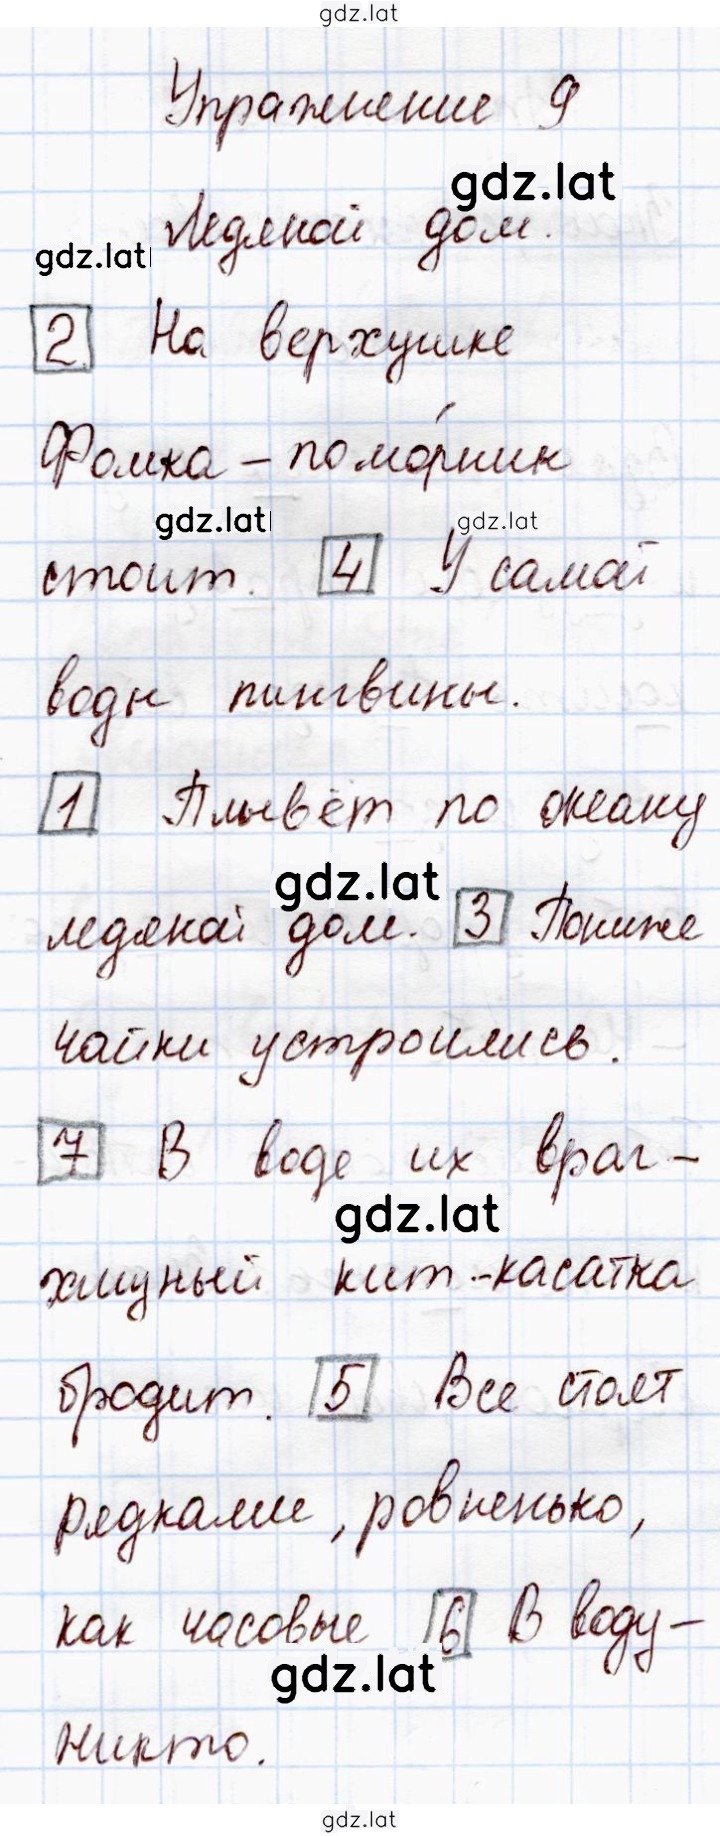 gdz.lat
Упражнение 9
gdz.lat
Ледяной дом.
gdz.lat
2 На верхушке
Фомка - помо́рник
gdz.lat gdz.lat
стоит. 4 У самой
воды пингвины.
1 Плывёт по океану
gdz.lat
ледяной дом. 3 Пониже
чайки устроились.
7 В воде их враг -
gdz.lat
хищный кит-касатка
бродит. 5 Все стоят
рядками, ровненько,
как часовые 6 В воду -
gdz.lat
никто.
gdz.lat